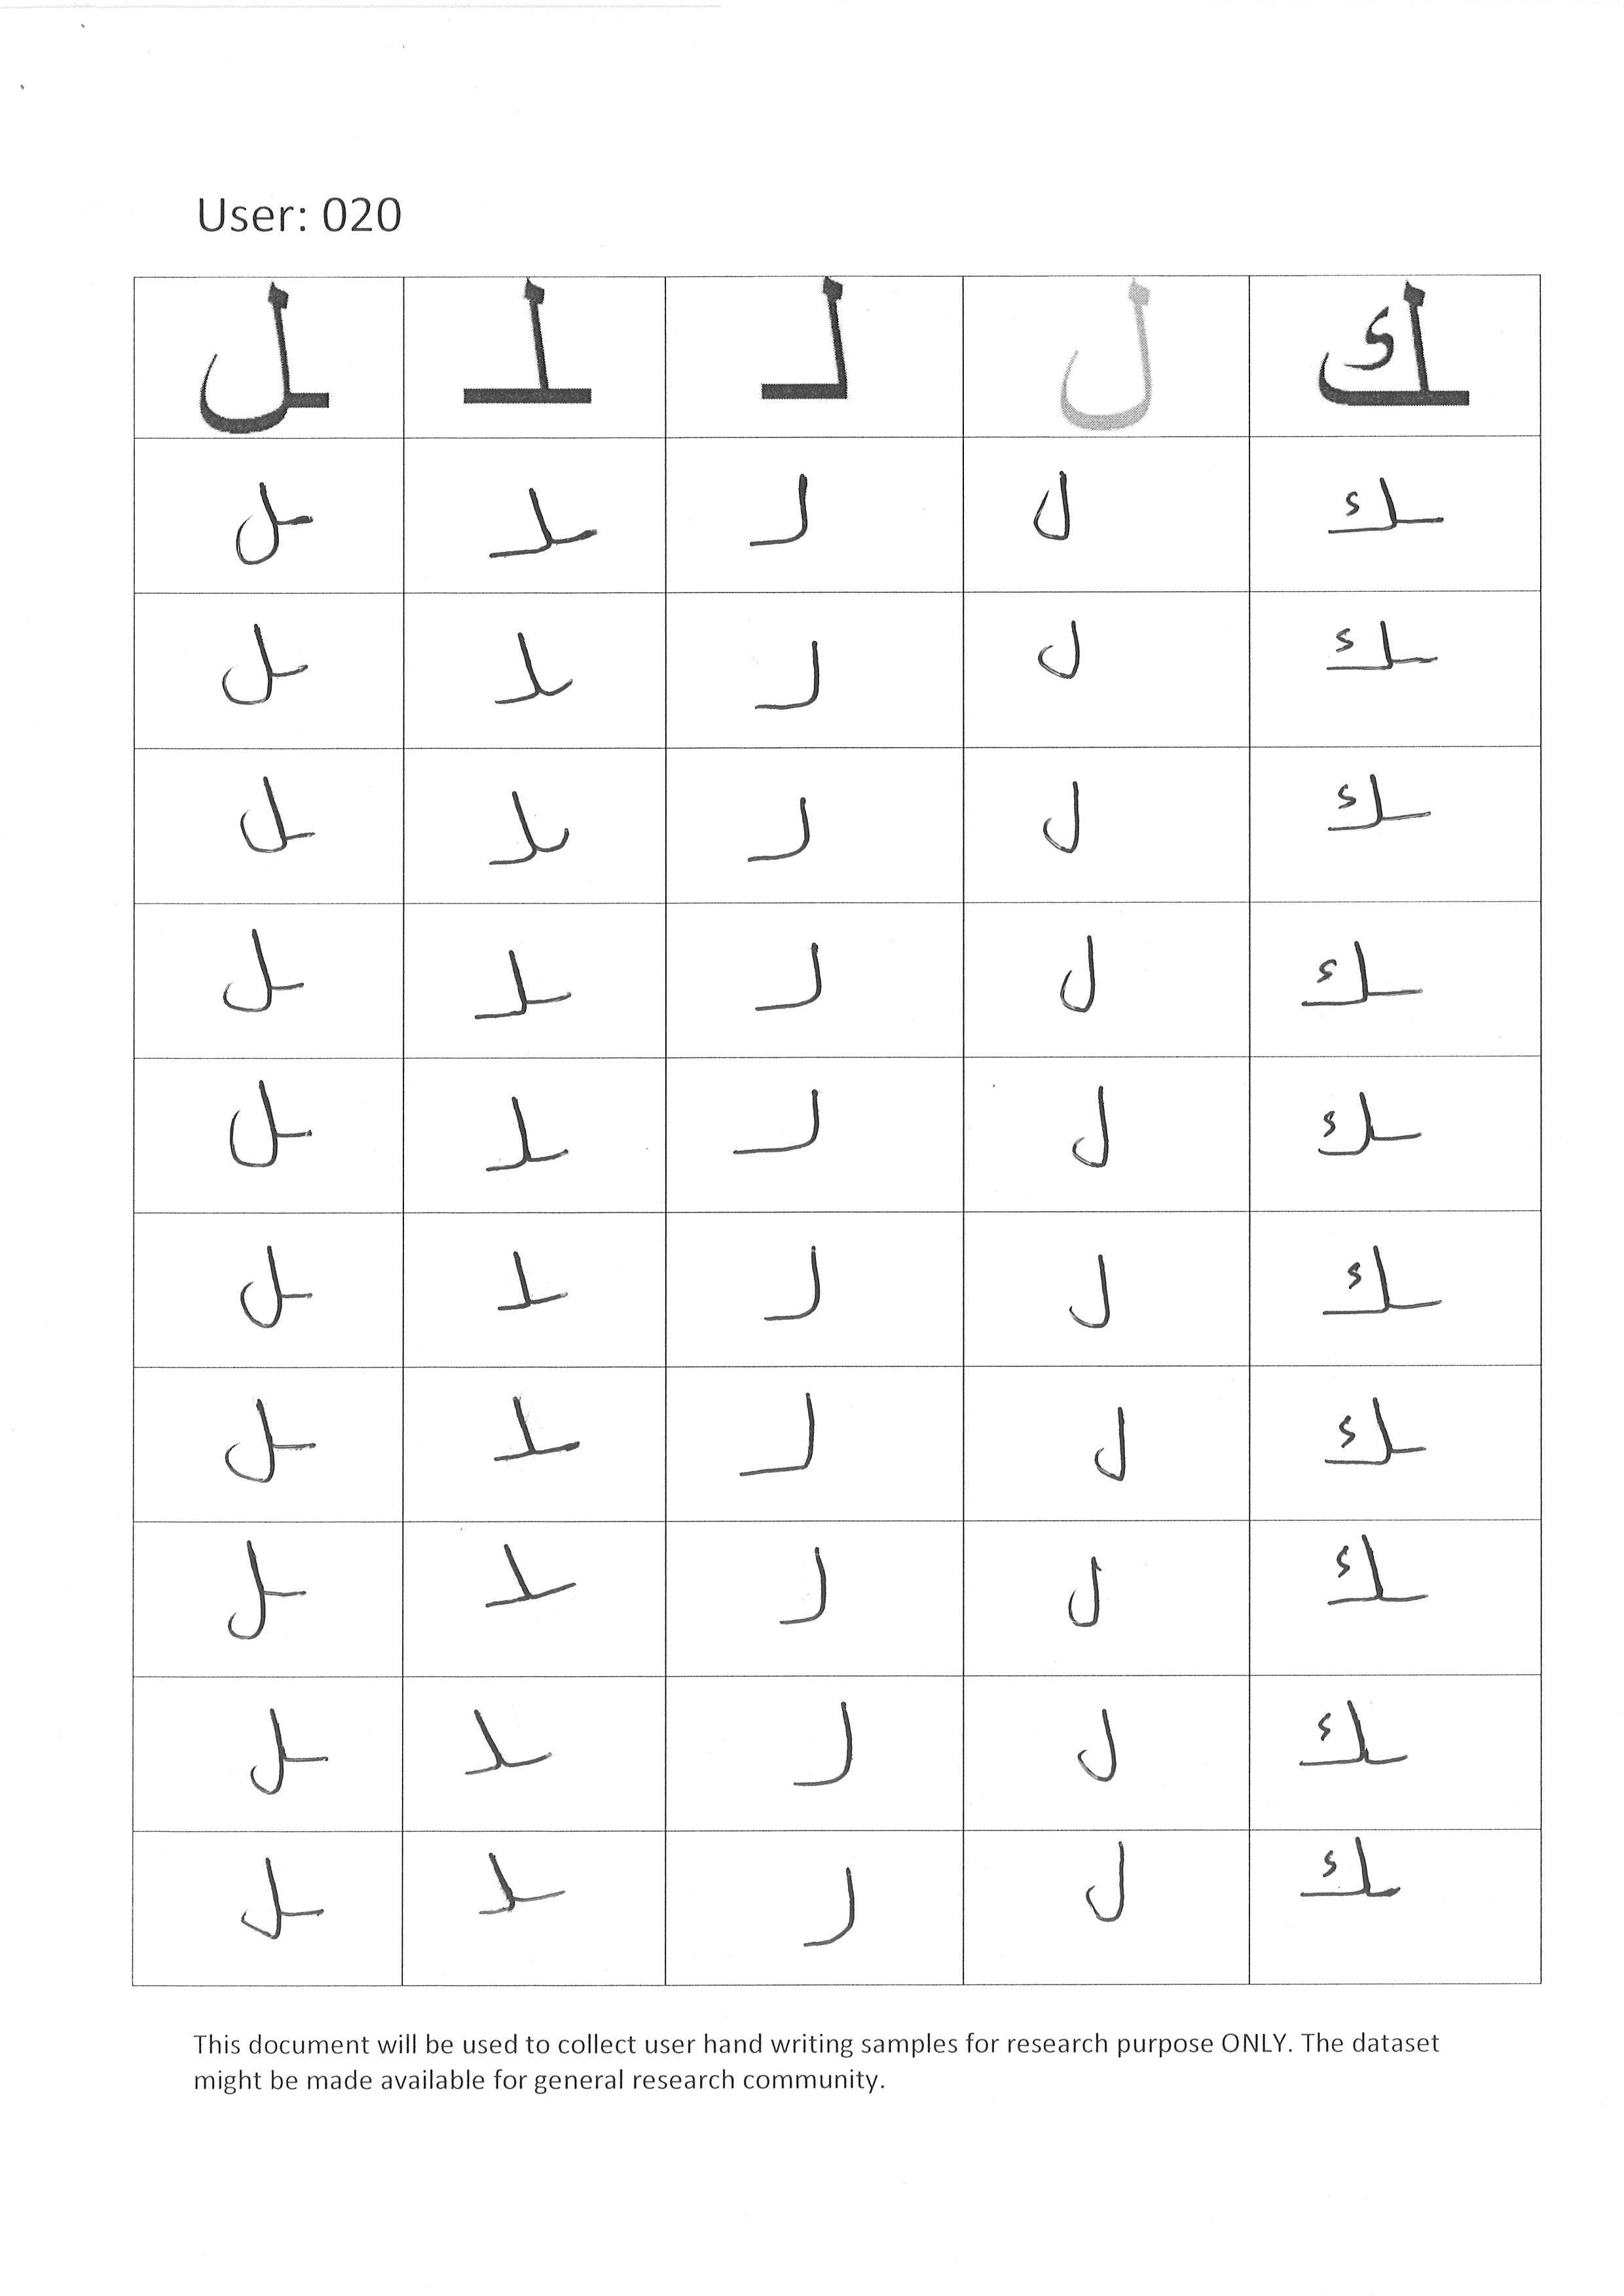 User: 020
ـل ـلـ لـ ل ـك
ـل ـلـ لـ ل ـك
ـل ـلـ لـ ل ـك
ـل ـلـ لـ ل ـك
ـل ـلـ لـ ل ـك
ـل ـلـ لـ ل ـك
ـل ـلـ لـ ل ـك
ـل ـلـ لـ ل ـك
ـل ـلـ لـ ل ـك
ـل ـلـ لـ ل ـك
ـل ـلـ لـ ل ـك
This document will be used to collect user hand writing samples for research purpose ONLY. The dataset
might be made available for general research community.